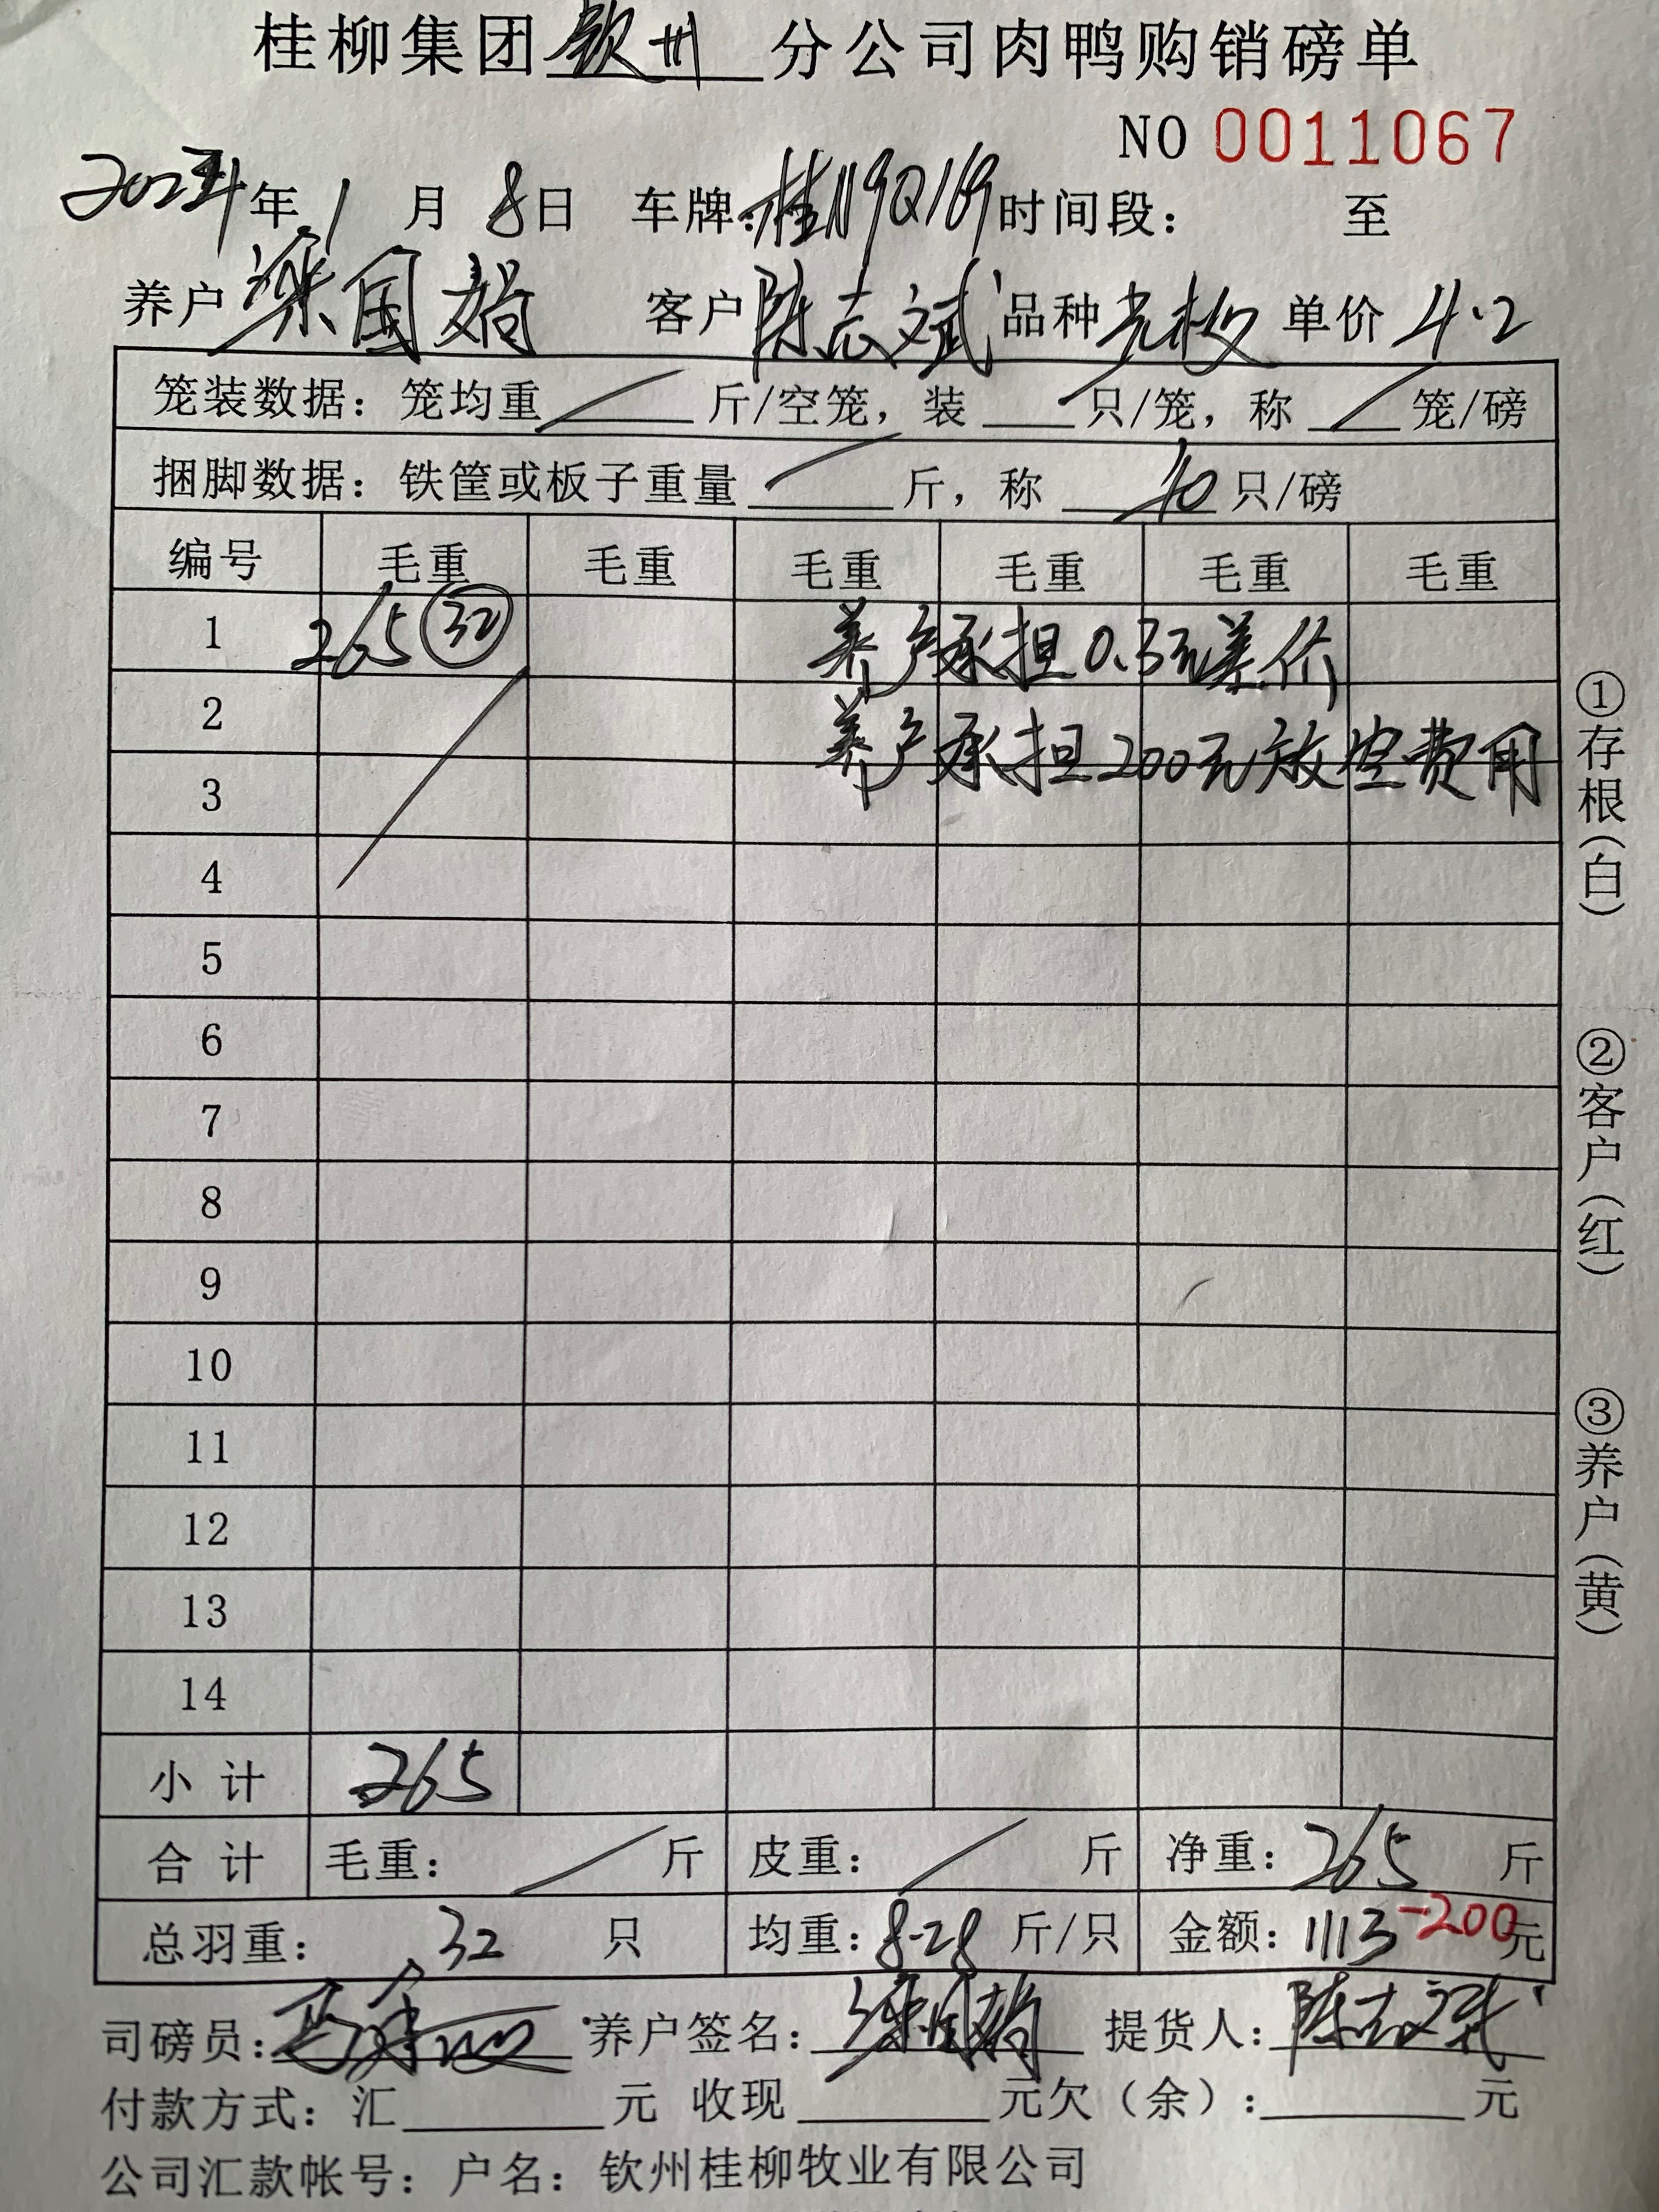 桂柳集团钦州分公司肉鸭购销磅单
NO 0011067
年1月8日 车牌:桂N9Q169 时间段: 至
养户梁国娟 客户陈志斌 品种 单价4.2
笼装数据:笼均重 斤/空笼,装 只/笼,称 笼/磅
捆脚数据:铁筐或板子重量 斤,称 10 只/磅
编号 毛重 毛重 毛重 毛重 毛重 毛重
1 265 32 养户承担0.3元差价
2 养户承担200元放空费用
3
4
5
6
7
8
9
10
11
12
13
14
小计 265
合计 毛重: 斤 皮重: 斤 净重:265 斤
总羽重: 32 只 均重:8.28 斤/只 金额:1113-200元
司磅员: 养户签名:梁国娟 提货人:陈志斌
付款方式:汇 元 收现 元欠(余): 元
公司汇款帐号:户名:钦州桂柳牧业有限公司
①存根(白)
②客户(红)
③养户(黄)